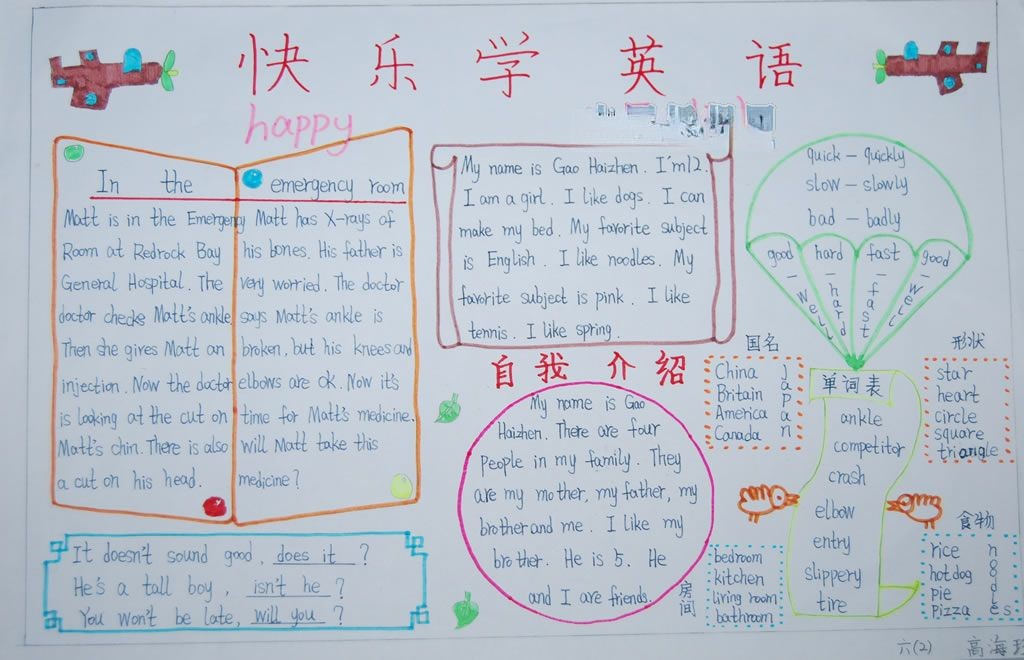 快乐学英语
happy
In the emergency room
Matt is in the Emergency
Room at Redrock Bay
General Hospital. The
doctor checks Matt's ankle.
Then she gives Matt an
injection. Now the doctor
is looking at the cut on
Matt's chin. There is also
a cut on his head.
Matt has X-rays of
his bones. His father is
very worried. The doctor
says Matt's ankle is
broken, but his knees and
elbows are ok. Now it's
time for Matt's medicine.
will Matt take this
medicine?
It doesn't sound good, does it ?
He's a tall boy, isn't he ?
You won't be late, will you ?
My name is Gao Haizhen. I'm 12.
I am a girl. I like dogs. I can
make my bed. My favorite subject
is English. I like noodles. My
favorite subject is pink. I like
tennis. I like spring.
自我介绍
My name is Gao
Haizhen. There are four
people in my family. They
are my mother, my father, my
brother and me. I like my
brother. He is 5. He
and I are friends.
quick - quickly
slow - slowly
bad - badly
good - well
hard - hard
fast - fast
good - well
国名
China
Britain
America
Canada
Japan
形状
star
heart
circle
square
triangle
单词表
ankle
competitor
crash
elbow
entry
slippery
tire
房间
bedroom
kitchen
living room
bathroom
食物
rice
hotdog
pie
pizza
六(2) 高海